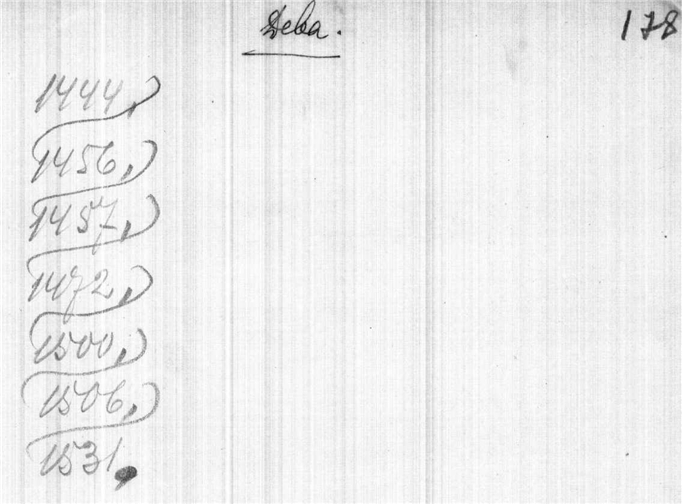 Deba. 178
1444,
1456,
1457,
1472,
1500,
1506,
1531,